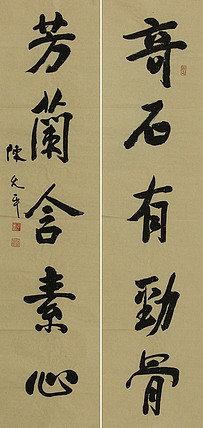 奇石有勁骨
芳蘭含素心
陳允平